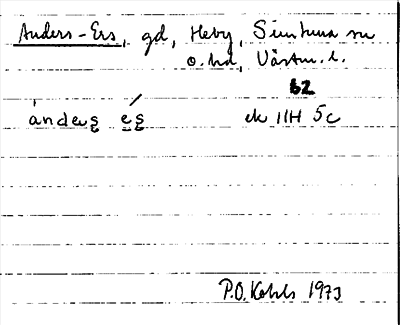 Anders-Ers, gd, Heby, Simtuna sn
o. hd, Västm. l.
62
ánders és
ek 11H 5c
P.O. Kohls 1973